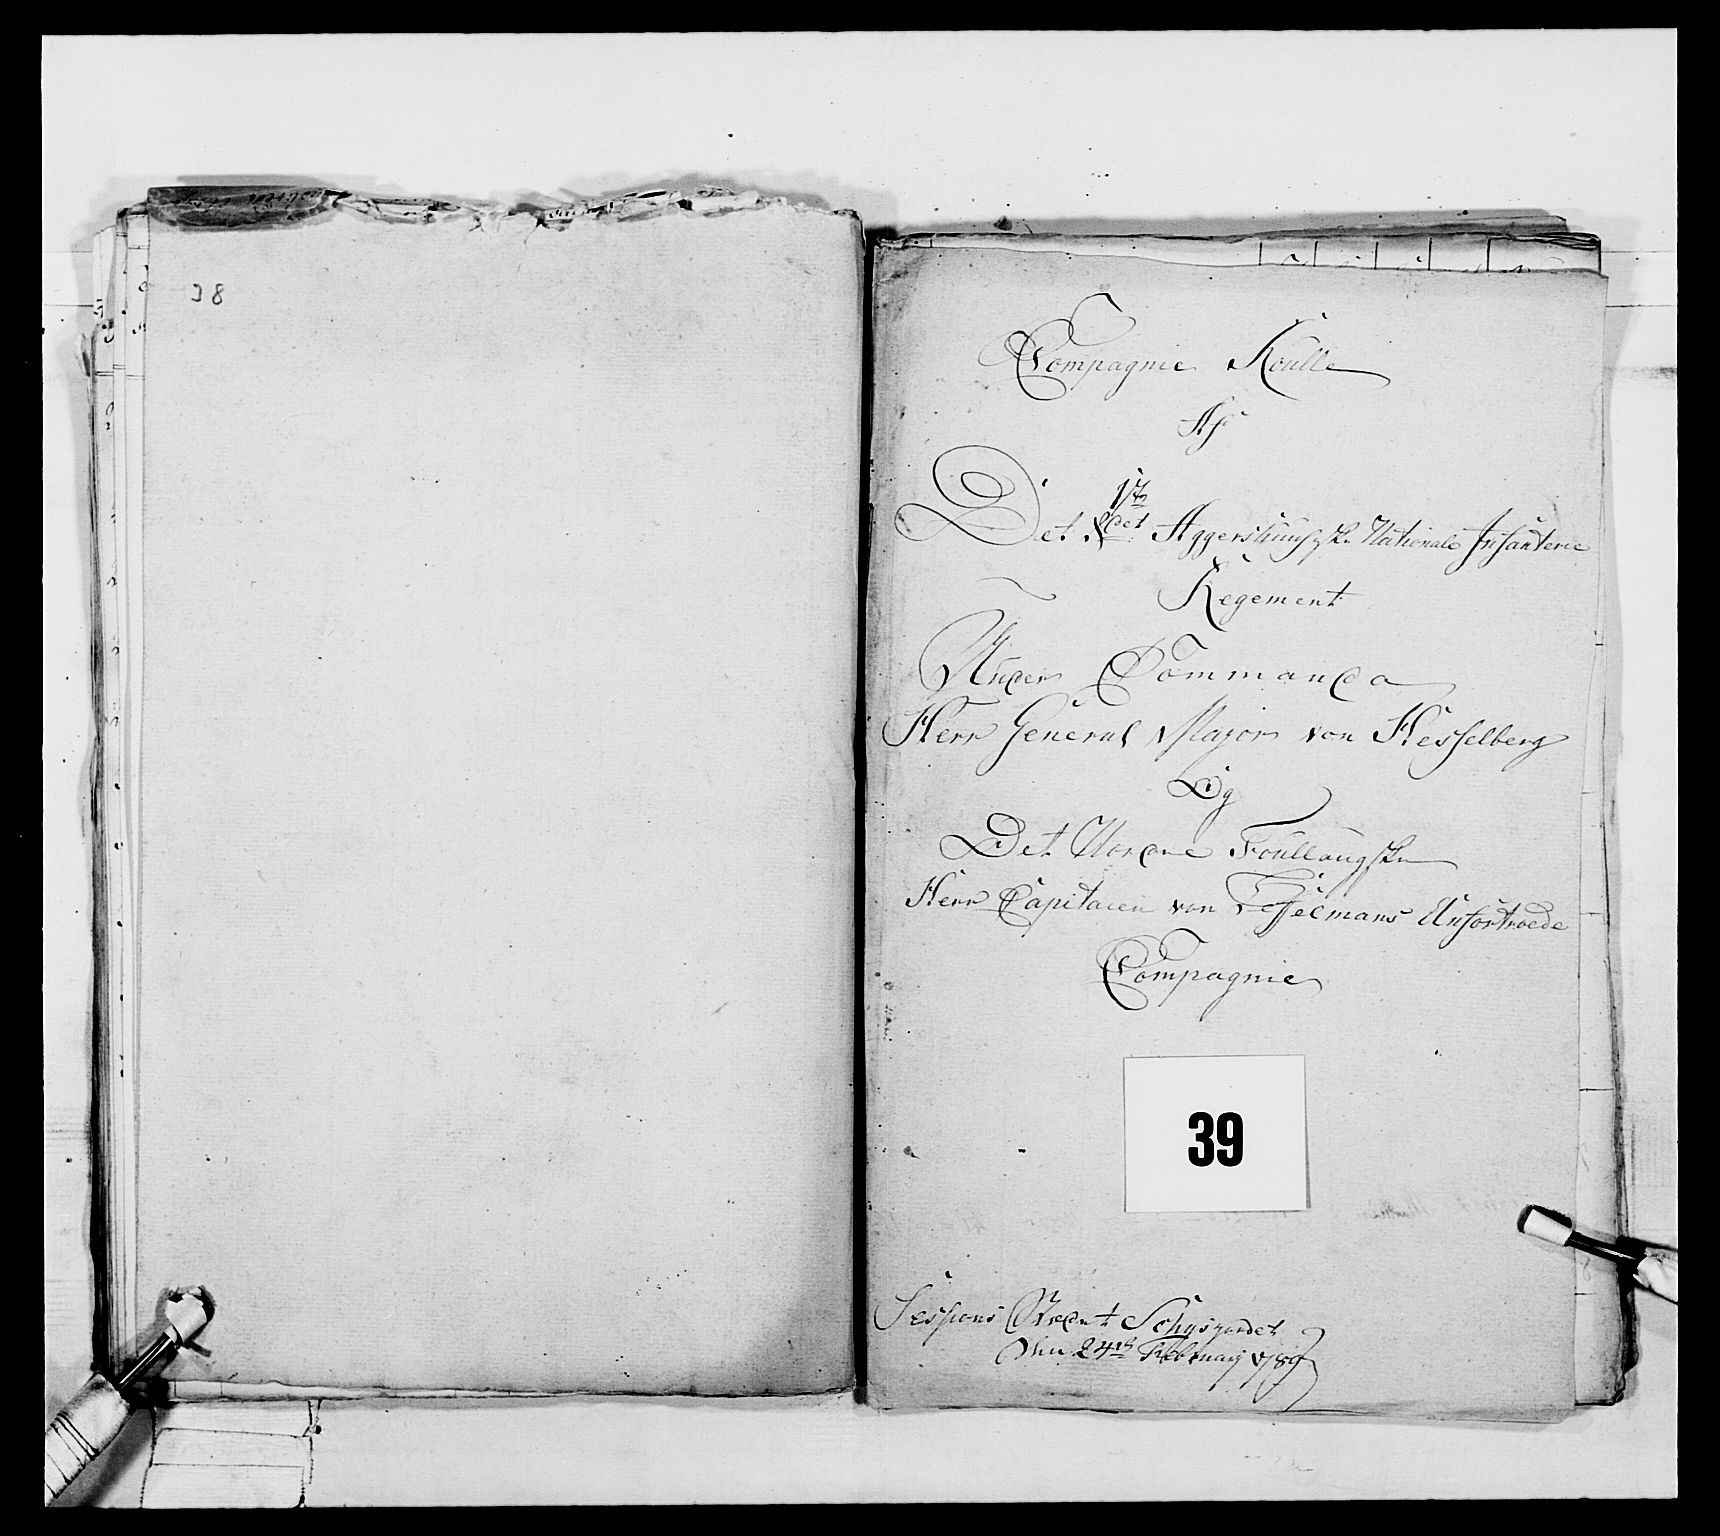 38
Compagnie Roulle
Af
Det 1te Aggershuusiske Nationale Infanterie
Regement
Under Commando
Herr General Major von Hesselberg
Og
Det Nordre Foullaugske
Herr Capitain von Anfortroede
Compagnie
39
Sessions Stædet Schysjordet
Den 24de Februarj 1789